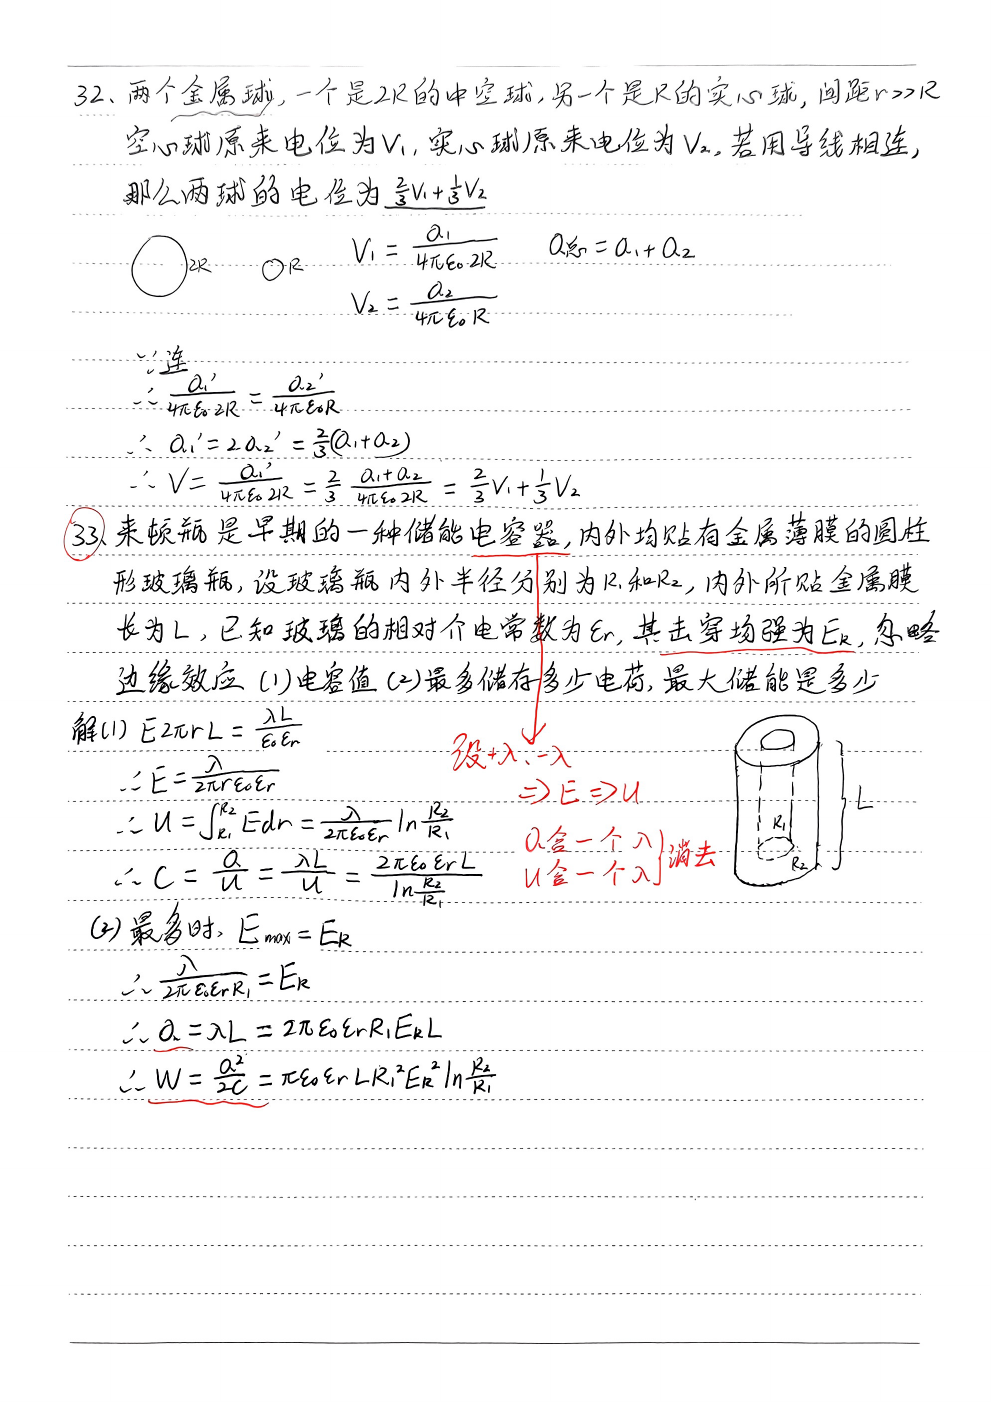 32、两个金属球,一个是2R的中空球,另一个是R的实心球,间距r>>R
空心球原来电位为V₁,实心球原来电位为V₂,若用导线相连,
那么两球的电位为 2/3V₁+1/3V₂
2R R V₁ = Q₁/(4πε₀·2R) Q总 = Q₁+Q₂
V₂ = Q₂/(4πε₀R)
∵连
∴ Q₁'/(4πε₀2R) = Q₂'/(4πε₀R)
∴ Q₁' = 2Q₂' = 2/3(Q₁+Q₂)
∴ V = Q₁'/(4πε₀2R) = 2/3 (Q₁+Q₂)/(4πε₀2R) = 2/3V₁+1/3V₂
33、来顿瓶是早期的一种储能电容器,内外均贴有金属薄膜的圆柱
形玻璃瓶,设玻璃瓶内外半径分别为R₁和R₂,内外所贴金属膜
长为L,已知玻璃的相对介电常数为εr,其击穿场强为E_R,忽略
边缘效应 (1)电容值 (2)最多储存多少电荷,最大储能是多少
解(1) E2πrL = λL/(ε₀εr)
∴ E = λ/(2πrε₀εr)
∴ U = ∫_{R₁}^{R₂} Edr = λ/(2πε₀εr) ln R₂/R₁
∴ C = Q/U = λL/U = 2πε₀εrL/(ln R₂/R₁)
设+λ、-λ
⇒ E ⇒ U
Q含一个λ
U含一个λ } 消去
R₁ R₂ L
(2) 最多时、E_max = E_R
∴ λ/(2πε₀εrR₁) = E_R
∴ Q = λL = 2πε₀εrR₁E_RL
∴ W = Q²/2C = πε₀εrLR₁²E_R² ln R₂/R₁